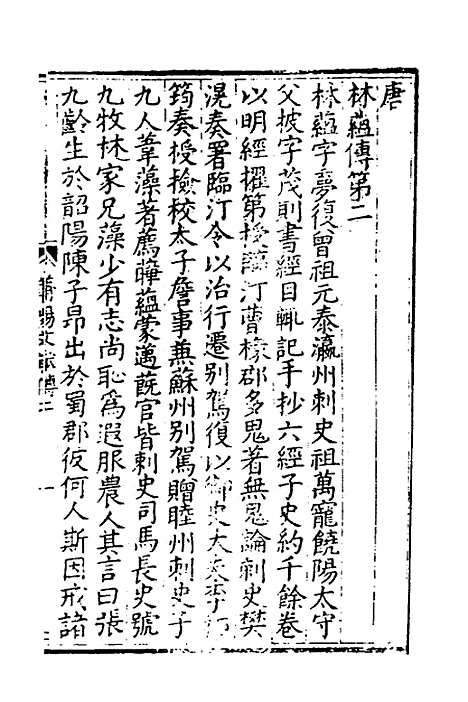 唐
林蘊傳第二
林蘊字夢復曾祖元泰瀛州刺史祖萬寵饒陽太守
父披字茂則書經目輒記手抄六經子史約千餘卷
以明經擢第授臨汀曹椽郡多鬼著無鬼論刺史樊
滉奏署臨汀令以治行遷別駕復以御史大夫李
筠奏授檢校太子詹事兼蘇州別駕贈睦州刺史子
九人葦藻著薦曄蘊蒙邁蔇官皆刺史司馬長史號
九牧林家兄藻少有志尚恥爲遐服農人其言曰張
九齡生於韶陽陳子昂出於蜀郡彼何人斯因戒諸
莆陽文獻傳 一